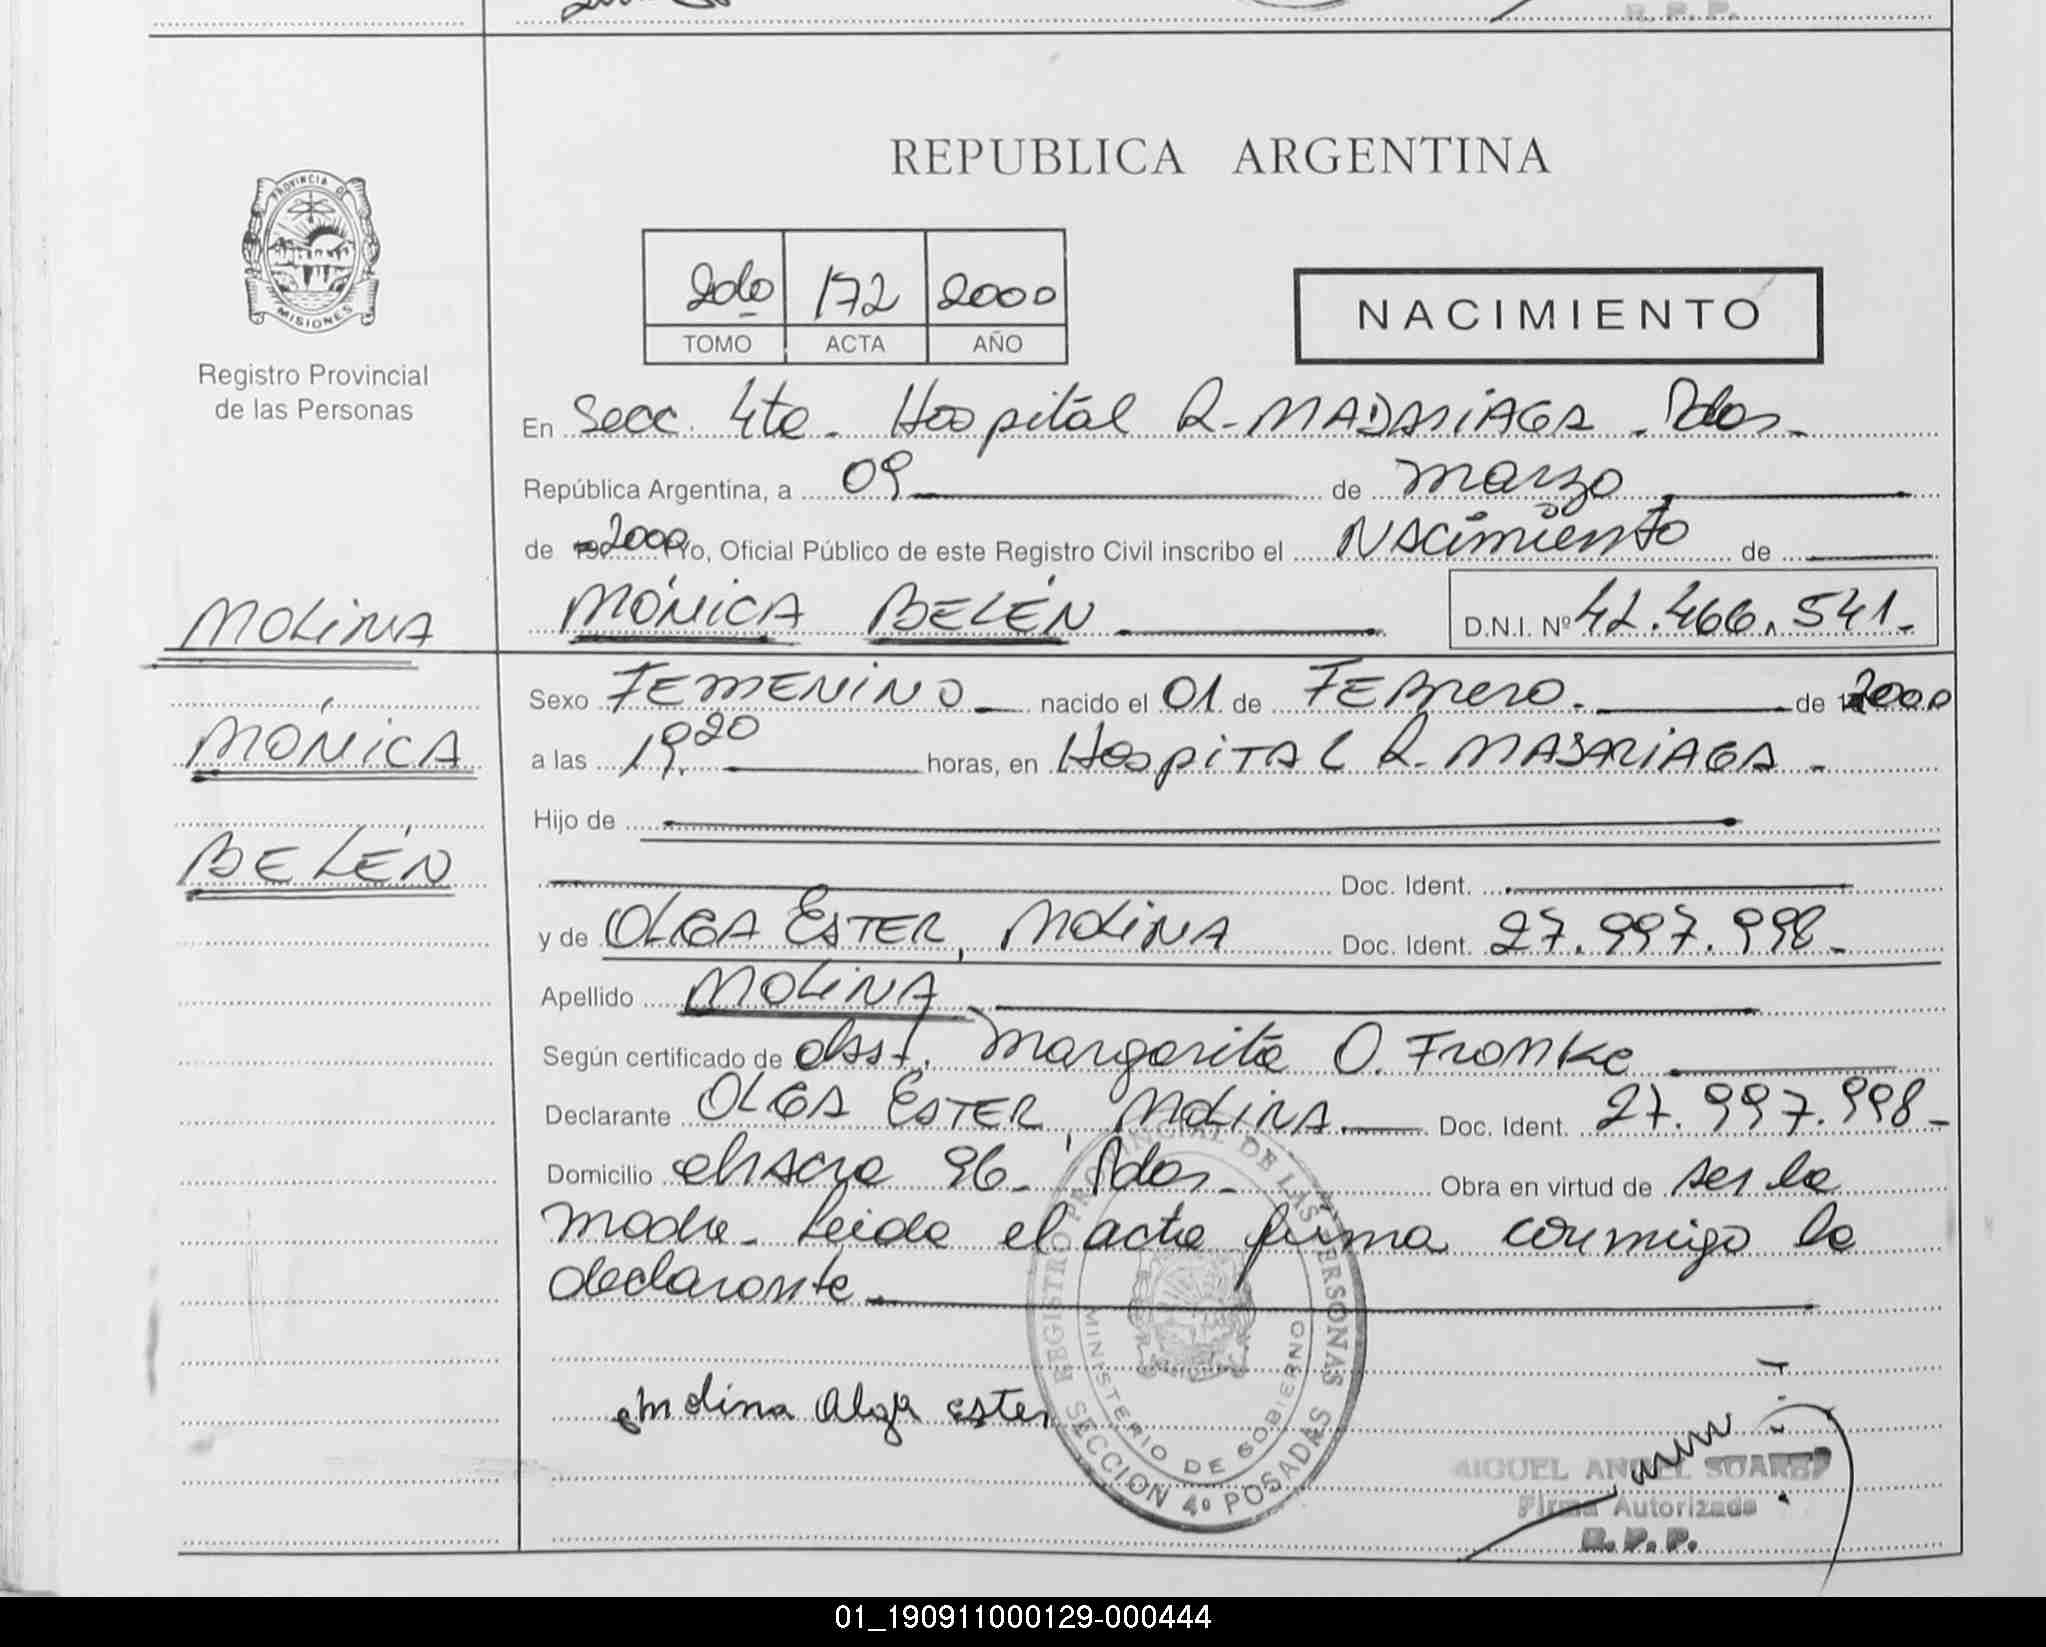 R. P. P.
REPUBLICA ARGENTINA
PROVINCIA DE
MISIONES
Registro Provincial
de las Personas
2do 172 2000
TOMO ACTA AÑO
NACIMIENTO
En Secc. 4ta. Hospital R. MADARIAGA. Pdas.
República Argentina, a 09 de marzo
de 2000 Yo, Oficial Público de este Registro Civil inscribo el NAcimiento de
MOLINA
MÓNICA BELÉN
D.N.I. Nº 42.466.541.
MÓNICA
BELÉN
Sexo FEMENINO nacido el 01 de FEBrero. de 2000
a las 19,20 horas, en HospiTAL R. MADARIAGA.
Hijo de
Doc. Ident.
y de OLGA ESTER, MOLINA Doc. Ident. 27.997.998.
Apellido MOLINA
Según certificado de obst. Margarita O. Fronke
Declarante OLGA ESTER, MOLINA Doc. Ident. 27.997.998-
Domicilio chacra 96. Pdas. Obra en virtud de ser la
madre. Leida el acta firma conmigo la
declarante
REGISTRO PROVINCIAL DE LAS PERSONAS
MINISTERIO DE GOBIERNO
SECCION 4º POSADAS
Molina Olga ester
MIGUEL ANGEL SUAREZ
Firma Autorizada
R. P. P.
01_190911000129-000444